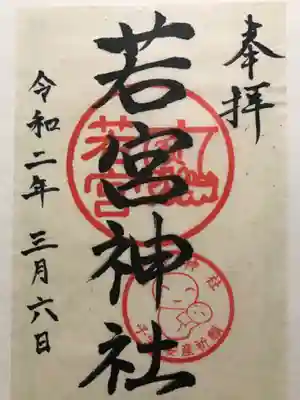 奉拝
若宮神社
令和二年 三月六日
若宮
安産祈願